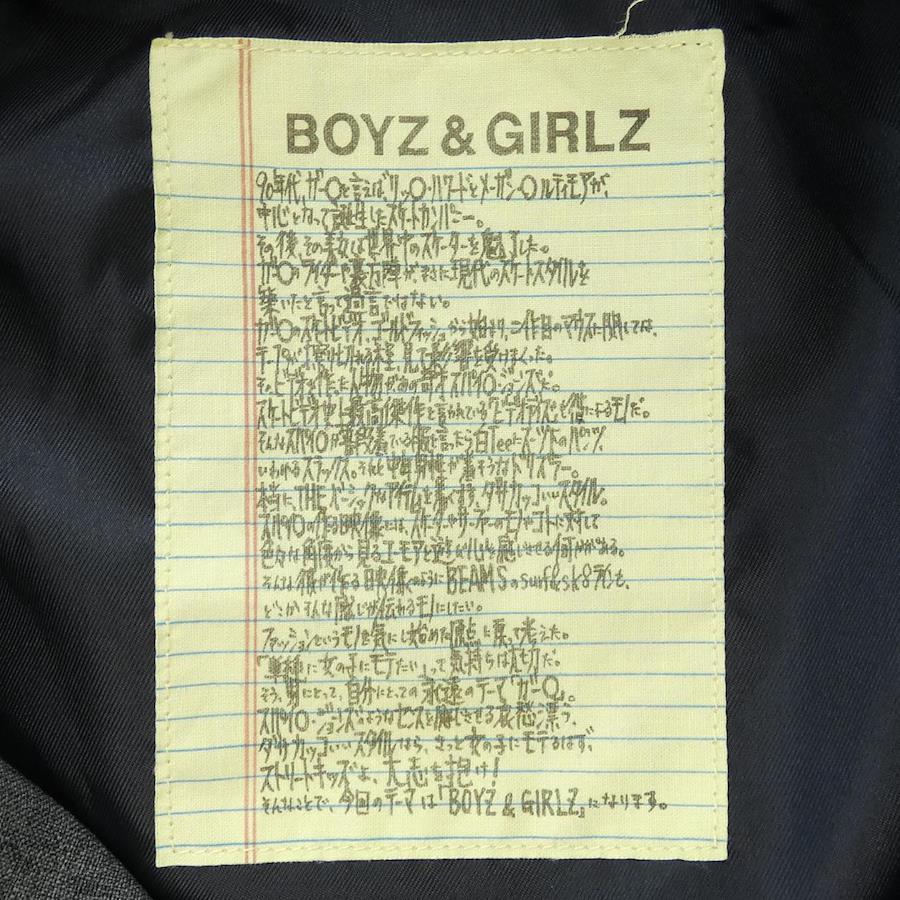 BOYZ & GIRLZ
90年代、ガー〇と言えばリッ〇・ハワードとメーガン〇ルティモアが、
中心となって誕生したスケートカンパニー。
その後、その美女は世界中のスケーターを魅了した。
ガー〇のライダーや裏方陣が、まさに現代のスケートスタイルを
築いたと言っても過言ではない。
ガー〇のスケートビデオ、ゴールドフィッシュから始まり、二作目のマウスに関しては、
テープが擦り切れる程、見て影響を受けまくった。
そのビデオを作った人物があの奇才スパイ〇・ジョンズだ。
スケートビデオ史上最高傑作と言われている「ビデオデイズ」も彼によるモノだ。
そんなスパイ〇が普段着ている服と言ったら白Teeにスーツ下のパンツ、
いわゆるスラックス。それと中年男性が着そうなドリズラー。
本当にTHEベーシックなアイテムを着くずす、ダサカッコいいスタイル。
スパイ〇の作る映像とは、スケーターやサーファーのモノやコトに対して
色々な角度から見るユーモアと遊び心を感じさせる何かがある。
そんな彼が作る映像のようにBEAMSのsurf&sk8ラインも、
どこかそんな感じが伝わるモノにしたい。
ファッションというモノを気にし始めた原点に戻って考えた。
「単純に女の子にモテたい」って気持ちは大切だ。
そう、男にとって、自分にとっての永遠のテーマ「ガー〇」。
スパイ〇・ジョンズのようなセンスを感じさせる哀愁漂う、
ダサカッコいいスタイルなら、きっと女の子にモテるはず、
ストリートキッズよ、大志を抱け！
そんなことで、今回のテーマは「BOYZ & GIRLZ」になります。